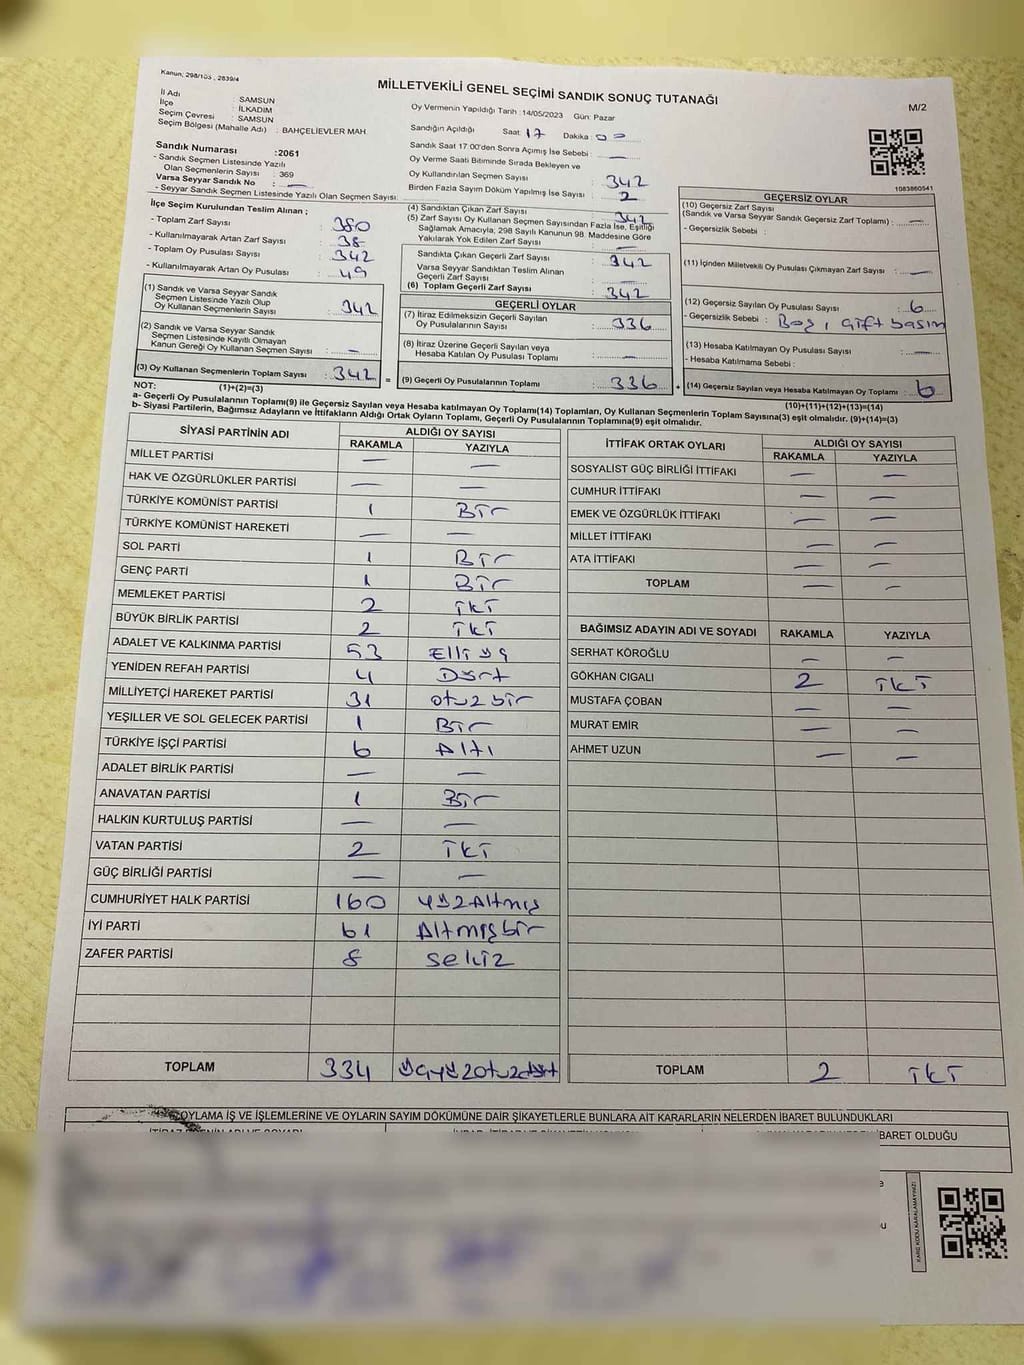 Kanun; 298/105 , 2839/4
MİLLETVEKİLİ GENEL SEÇİMİ SANDIK SONUÇ TUTANAĞI
M/2
İl Adı : SAMSUN
İlçe : İLKADIM
Seçim Çevresi : SAMSUN
Seçim Bölgesi (Mahalle Adı) : BAHÇELİEVLER MAH
Sandık Numarası :2061
- Sandık Seçmen Listesinde Yazılı
Olan Seçmenlerin Sayısı : 369
Varsa Seyyar Sandık No : —
- Seyyar Sandık Seçmen Listesinde Yazılı Olan Seçmen Sayısı:
Oy Vermenin Yapıldığı Tarih :14/05/2023 Gün: Pazar
Sandığın Açıldığı Saat: 17 Dakika : 00
Sandık Saat 17.00'den Sonra Açılmış İse Sebebi : —
Oy Verme Saati Bitiminde Sırada Bekleyen ve
Oy Kullandırılan Seçmen Sayısı : 342
Birden Fazla Sayım Döküm Yapılmış İse Sayısı : 2
1083860541
İlçe Seçim Kurulundan Teslim Alınan ;
- Toplam Zarf Sayısı : 380
- Kullanılmayarak Artan Zarf Sayısı : 38
- Toplam Oy Pusulası Sayısı : 342
- Kullanılmayarak Artan Oy Pusulası : 49
(1) Sandık ve Varsa Seyyar Sandık
Seçmen Listesinde Yazılı Olup
Oy Kullanan Seçmenlerin Sayısı : 342
(2) Sandık ve Varsa Seyyar Sandık
Seçmen Listesinde Kayıtlı Olmayan
Kanun Gereği Oy Kullanan Seçmen Sayısı : —
(3) Oy Kullanan Seçmenlerin Toplam Sayısı : 342 =
(4) Sandıktan Çıkan Zarf Sayısı : 342
(5) Zarf Sayısı Oy Kullanan Seçmen Sayısından Fazla İse, Eşitliği
Sağlamak Amacıyla, 298 Sayılı Kanunun 98. Maddesine Göre
Yakılarak Yok Edilen Zarf Sayısı : —
Sandıkta Çıkan Geçerli Zarf Sayısı : 342
Varsa Seyyar Sandıktan Teslim Alınan
Geçerli Zarf Sayısı : —
(6) Toplam Geçerli Zarf Sayısı : 342
GEÇERLİ OYLAR
(7) İtiraz Edilmeksizin Geçerli Sayılan
Oy Pusulalarının Sayısı : 336
(8) İtiraz Üzerine Geçerli Sayılan veya
Hesaba Katılan Oy Pusulası Toplamı : —
(9) Geçerli Oy Pusulalarının Toplamı : 336 +
GEÇERSİZ OYLAR
(10) Geçersiz Zarf Sayısı
(Sandık ve Varsa Seyyar Sandık Geçersiz Zarf Toplamı) : —
- Geçersizlik Sebebi :
(11) İçinden Milletvekili Oy Pusulası Çıkmayan Zarf Sayısı : —
(12) Geçersiz Sayılan Oy Pusulası Sayısı : 6
- Geçersizlik Sebebi : Boş, Çift basım
(13) Hesaba Katılmayan Oy Pusulası Sayısı : —
- Hesaba Katılmama Sebebi :
(14) Geçersiz Sayılan veya Hesaba Katılmayan Oy Toplamı : 6
NOT: (1)+(2)=(3)
(10)+(11)+(12)+(13)=(14)
a- Geçerli Oy Pusulalarının Toplamı(9) ile Geçersiz Sayılan veya Hesaba katılmayan Oy Toplamı(14) Toplamları, Oy Kullanan Seçmenlerin Toplam Sayısına(3) eşit olmalıdır. (9)+(14)=(3)
b- Siyasi Partilerin, Bağımsız Adayların ve İttifakların Aldığı Ortak Oyların Toplamı, Geçerli Oy Pusulalarının Toplamına(9) eşit olmalıdır.
SİYASİ PARTİNİN ADI ALDIĞI OY SAYISI
RAKAMLA YAZIYLA
MİLLET PARTİSİ — —
HAK VE ÖZGÜRLÜKLER PARTİSİ — —
TÜRKİYE KOMÜNİST PARTİSİ 1 Bir
TÜRKİYE KOMÜNİST HAREKETİ — —
SOL PARTİ 1 Bir
GENÇ PARTİ 1 Bir
MEMLEKET PARTİSİ 2 İki
BÜYÜK BİRLİK PARTİSİ 2 İki
ADALET VE KALKINMA PARTİSİ 53 Elli üç
YENİDEN REFAH PARTİSİ 4 Dört
MİLLİYETÇİ HAREKET PARTİSİ 31 otuz bir
YEŞİLLER VE SOL GELECEK PARTİSİ 1 Bir
TÜRKİYE İŞÇİ PARTİSİ 6 Altı
ADALET BİRLİK PARTİSİ — —
ANAVATAN PARTİSİ 1 Bir
HALKIN KURTULUŞ PARTİSİ — —
VATAN PARTİSİ 2 İki
GÜÇ BİRLİĞİ PARTİSİ — —
CUMHURİYET HALK PARTİSİ 160 yüzAltmış
İYİ PARTİ 61 Altmışbir
ZAFER PARTİSİ 8 sekiz
TOPLAM 334 üçyüzotuzdört
İTTİFAK ORTAK OYLARI ALDIĞI OY SAYISI
RAKAMLA YAZIYLA
SOSYALİST GÜÇ BİRLİĞİ İTTİFAKI — —
CUMHUR İTTİFAKI — —
EMEK VE ÖZGÜRLÜK İTTİFAKI — —
MİLLET İTTİFAKI — —
ATA İTTİFAKI — —
TOPLAM — —
BAĞIMSIZ ADAYIN ADI VE SOYADI RAKAMLA YAZIYLA
SERHAT KÖROĞLU — —
GÖKHAN CIGALI 2 İki
MUSTAFA ÇOBAN — —
MURAT EMİR — —
AHMET UZUN — —
TOPLAM 2 İki
OYLAMA İŞ VE İŞLEMLERİNE VE OYLARIN SAYIM DÖKÜMÜNE DAİR ŞİKAYETLERLE BUNLARA AİT KARARLARIN NELERDEN İBARET BULUNDUKLARI
İBARET OLDUĞU
KARE KODU KARALAMAYINIZ!